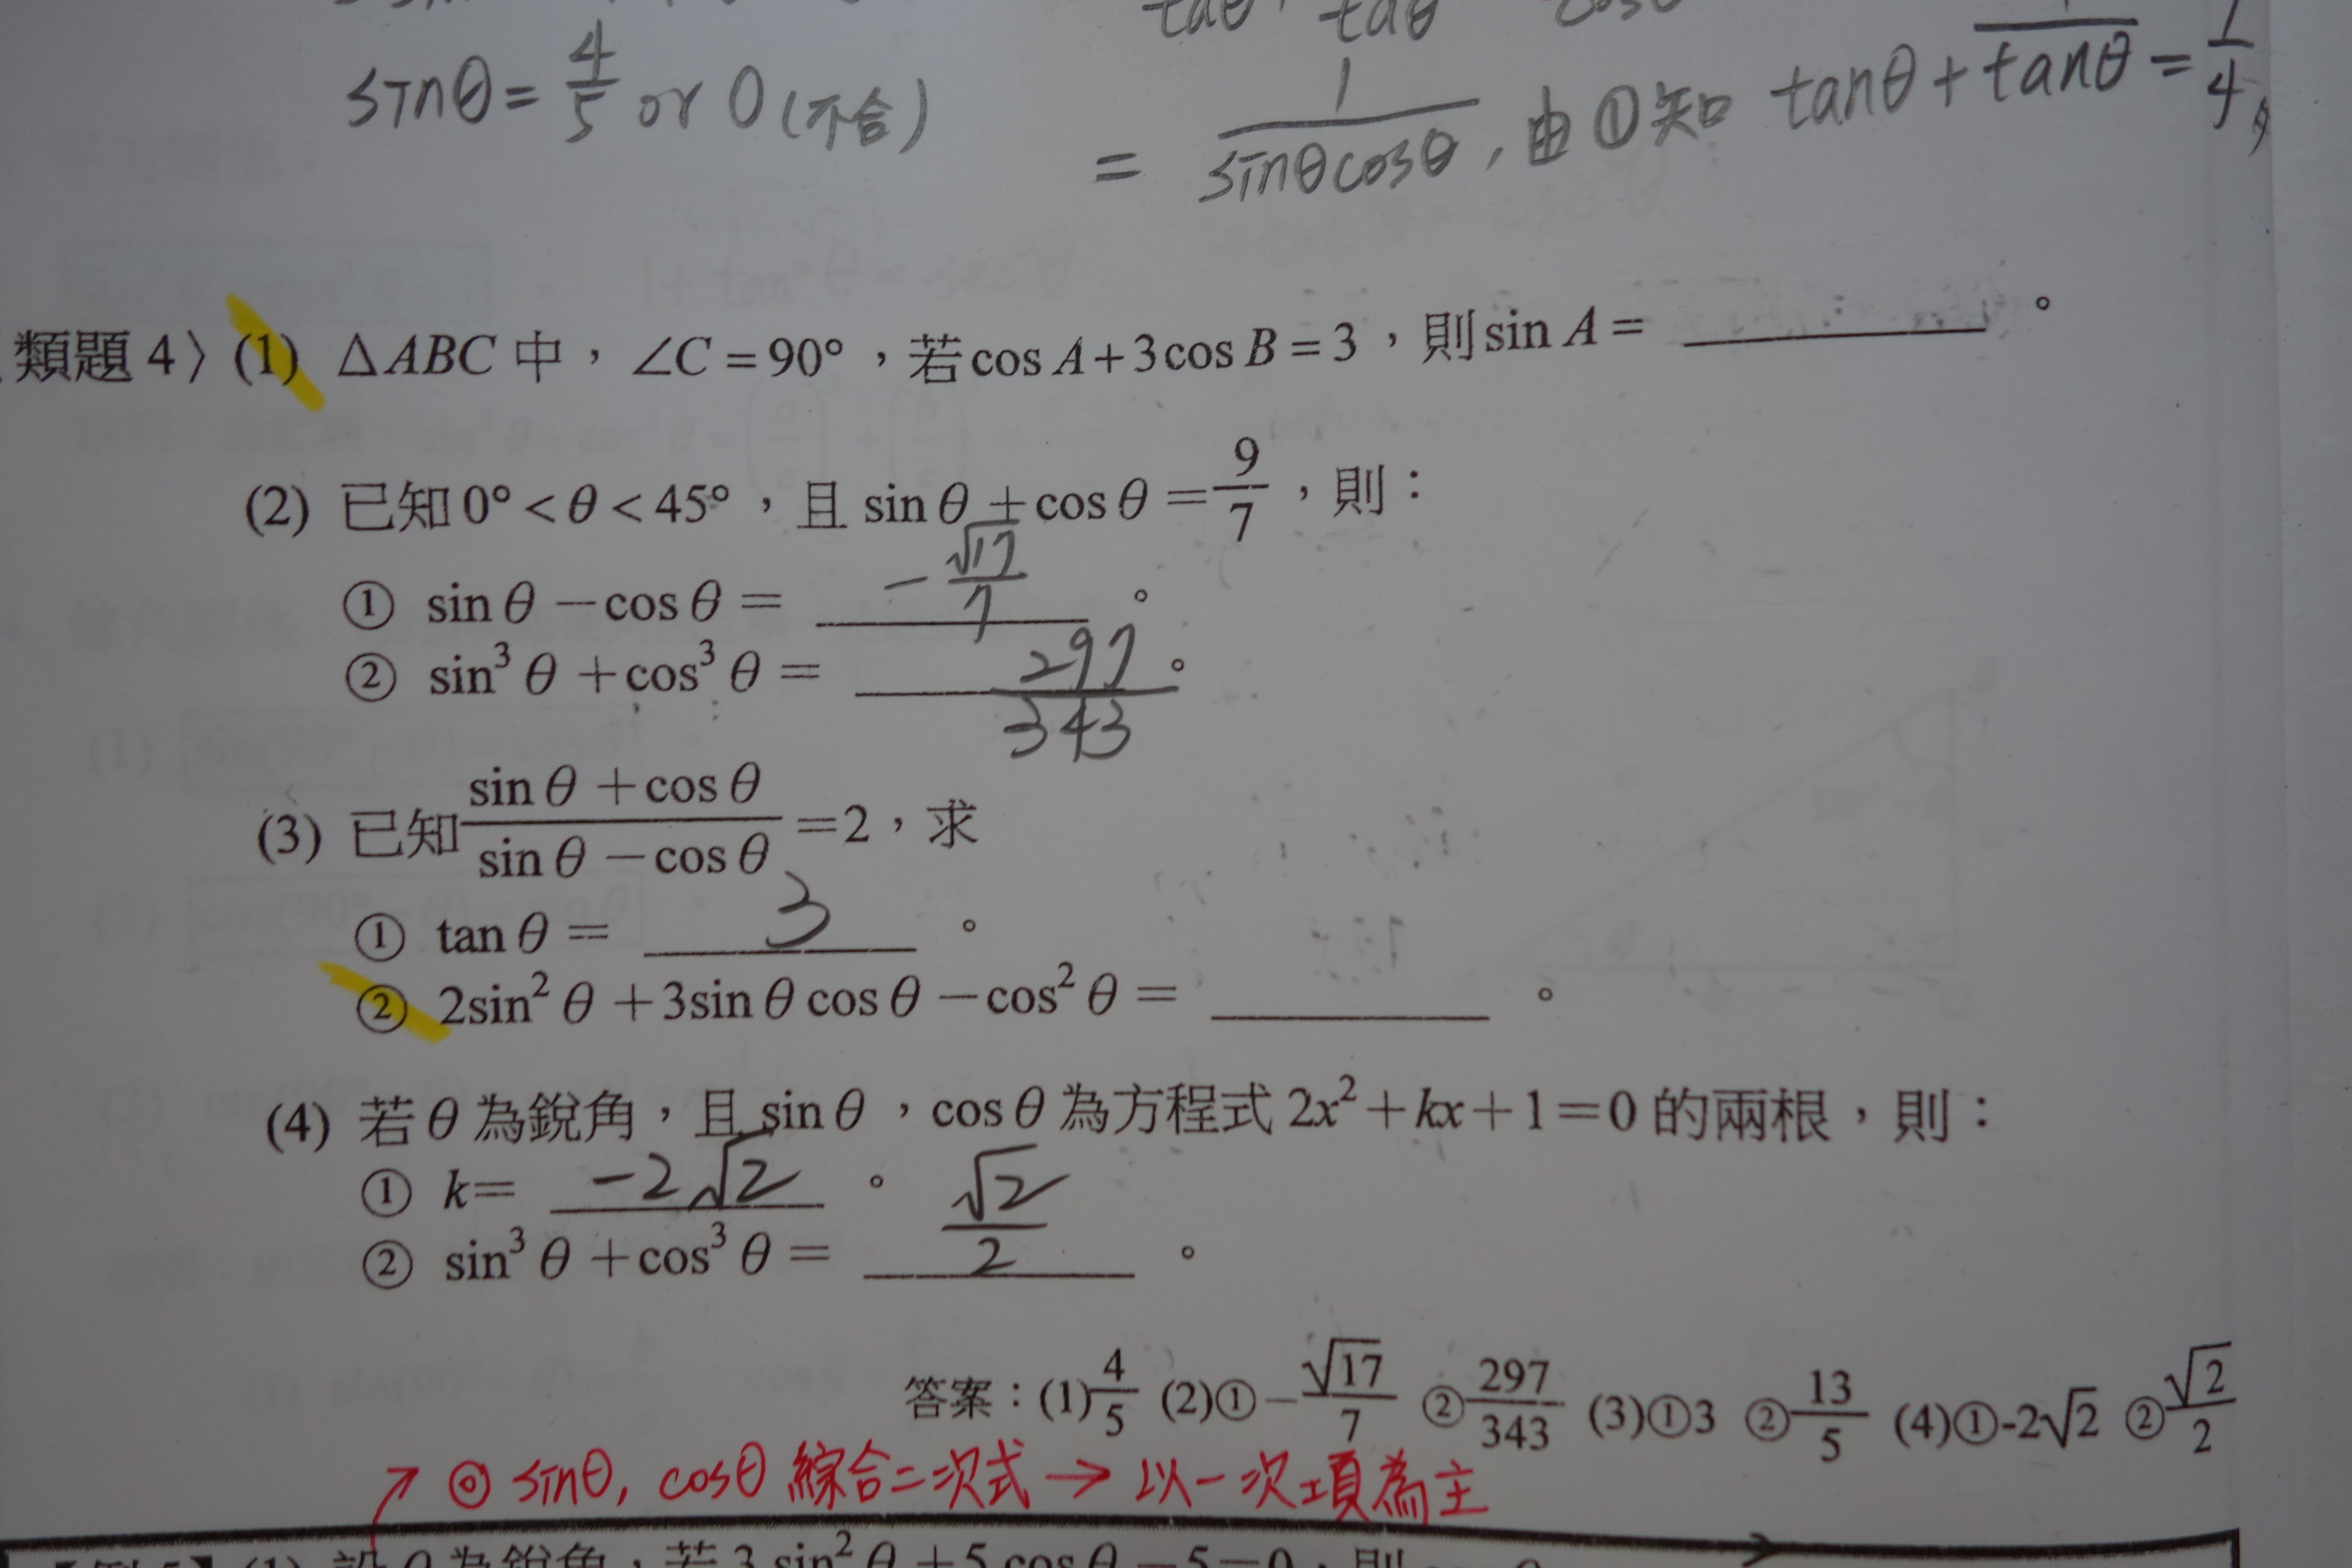 sinθ = 4/5 or 0 (不合)
= 1/(sinθcosθ) , 由①知 tanθ + 1/tanθ = 1/4
類題 4〉(1) △ABC 中，∠C = 90°，若 cos A + 3cos B = 3，則 sin A = ________。
(2) 已知 0° < θ < 45°，且 sin θ + cos θ = 9/7，則：
① sin θ − cos θ = −√17/7。
② sin³ θ + cos³ θ = 297/343。
(3) 已知 (sin θ + cos θ)/(sin θ − cos θ) = 2，求
① tan θ = 3。
② 2sin² θ + 3sin θ cos θ − cos² θ = ________。
(4) 若 θ 為銳角，且 sin θ，cos θ 為方程式 2x² + kx + 1 = 0 的兩根，則：
① k = −2√2。
② sin³ θ + cos³ θ = √2/2。
答案：(1) 4/5 (2)① −√17/7 ② 297/343 (3)①3 ② 13/5 (4)①-2√2 ② √2/2
◎ sinθ, cosθ 綜合二次式 → 以一次項為主